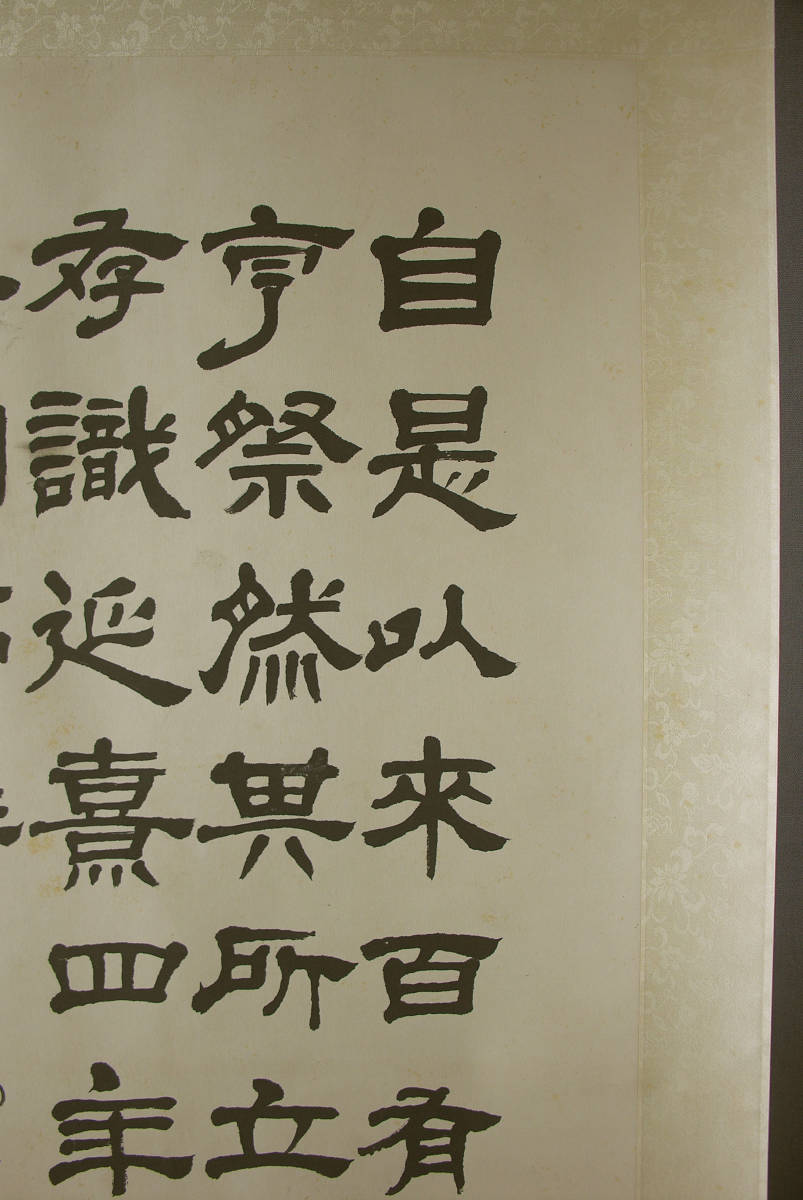 自是以來百有
亨祭然其所立
存識延熹四年